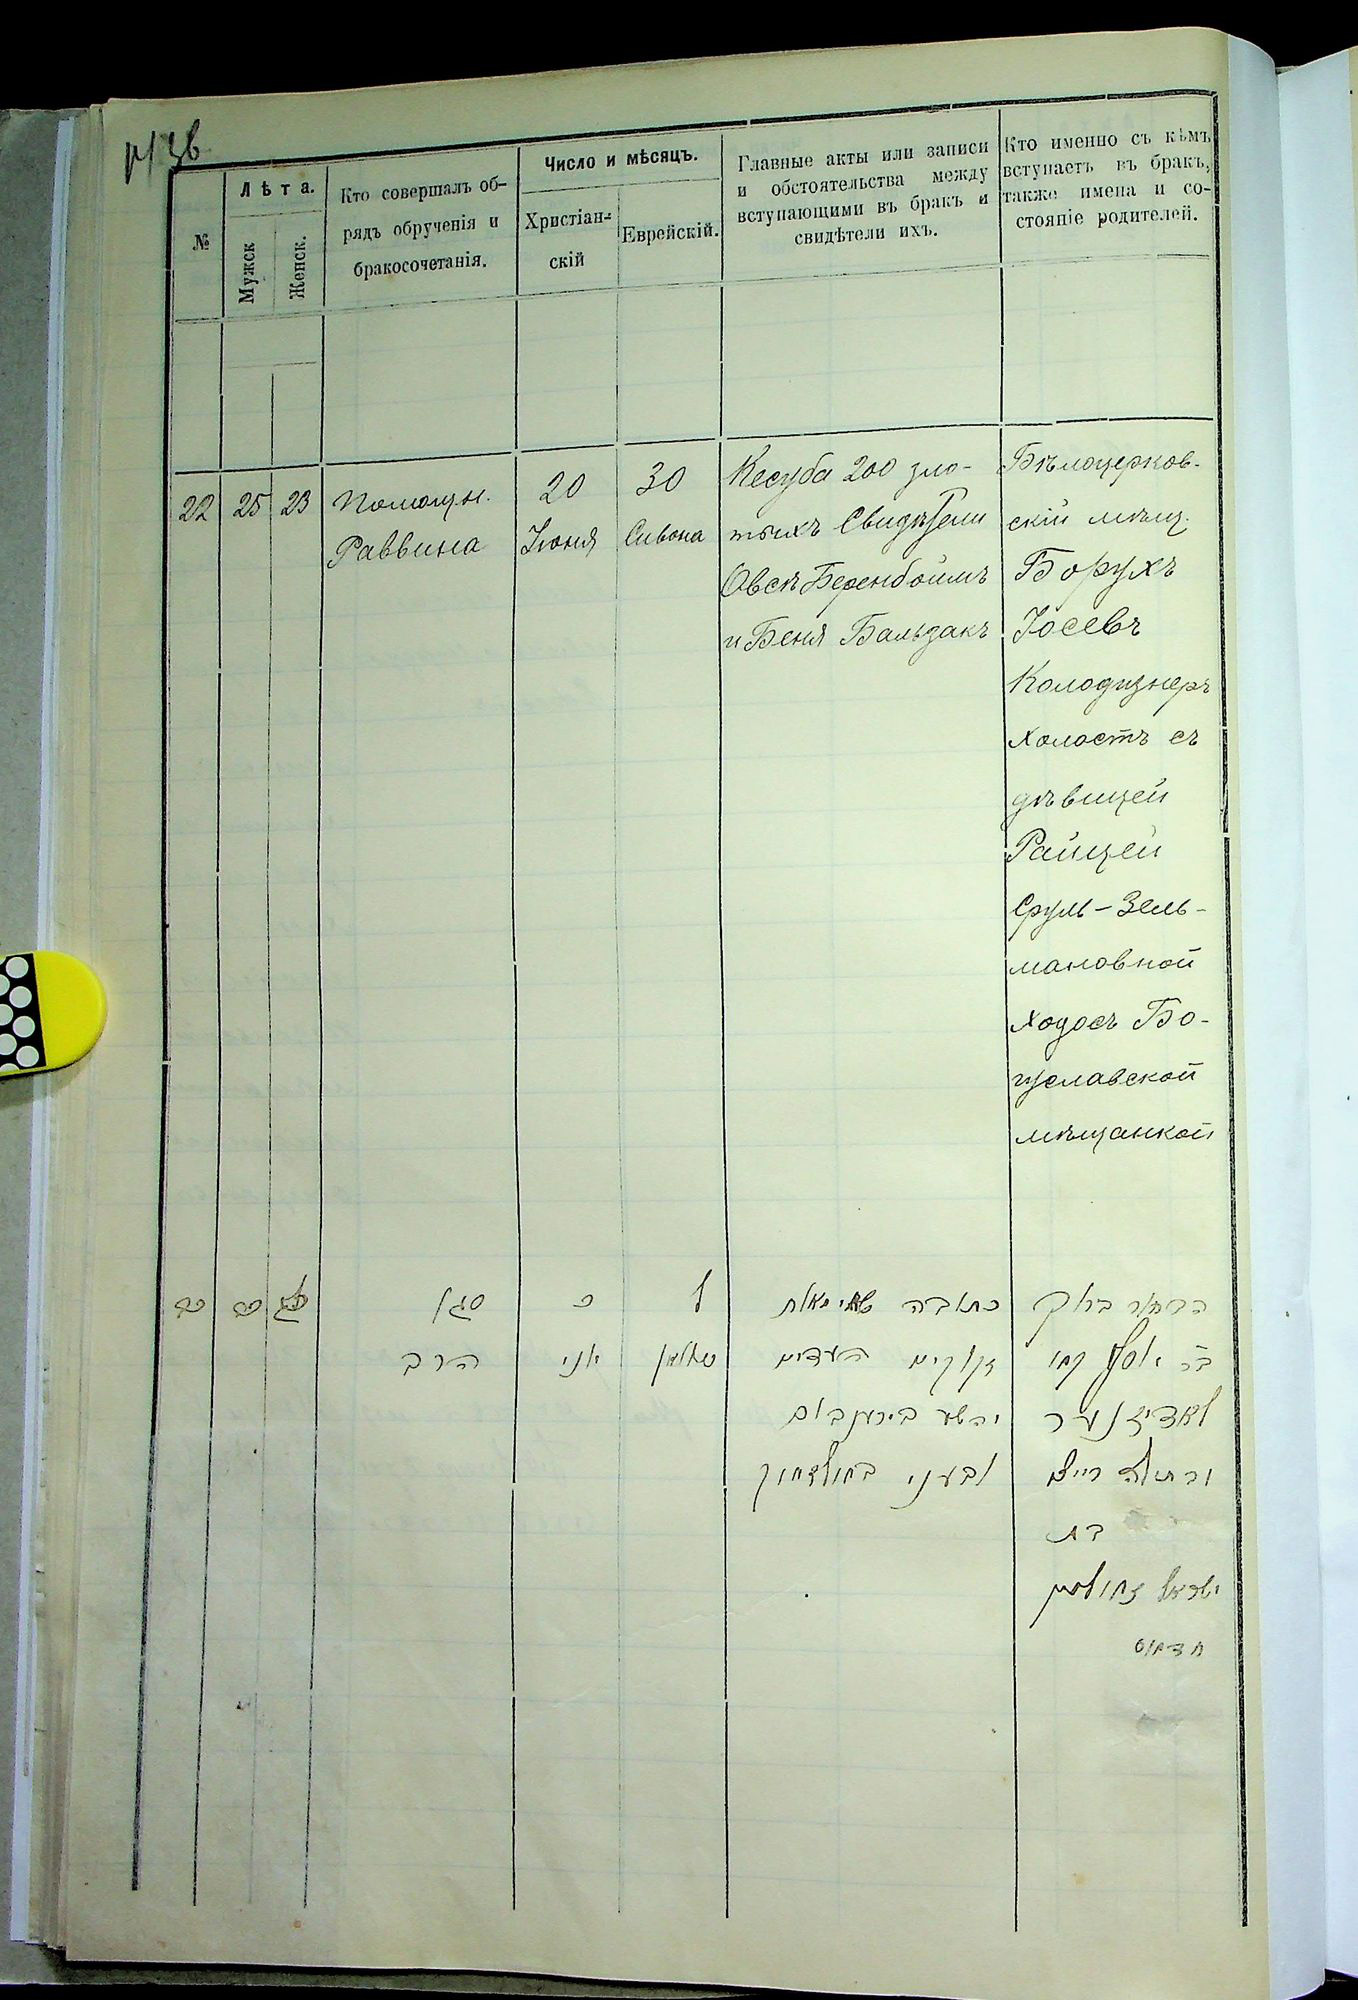 №
Лѣта.
Мужск
Женск.
Кто совершалъ об-
рядъ обрученія и
бракосочетанія.
Число и мѣсяцъ.
Христіан-
скій
Еврейскій.
Главные акты или записи
и обстоятельства между
вступающими въ бракъ и
свидѣтели ихъ.
Кто именно съ кѣмъ
вступаетъ въ бракъ,
также имена и со-
стояніе родителей.
22
25
23
Помощн.
Раввина
20
Іюня
30
Сивона
Кесуба 200 зло-
тыхъ Свидѣтели
Овсѣ Беренбоймъ
и Беня Бальзакъ
Бѣлоцерков-
скій мѣщ.
Борухъ
Іосевъ
Колодизнеръ
холостъ съ
дѣвицей
Райцей
Сруль-Зель-
мановной
Ходосъ Бо-
гуславской
мѣщанкой
סגן
הרב
כ
יוני
ל
כתובה
זקוקים העדים
יהשע בירענבוים
ובעני
הבחור ברוך
יוסף
לאדיזנער
והבתולה רייצא
בת
ישראל